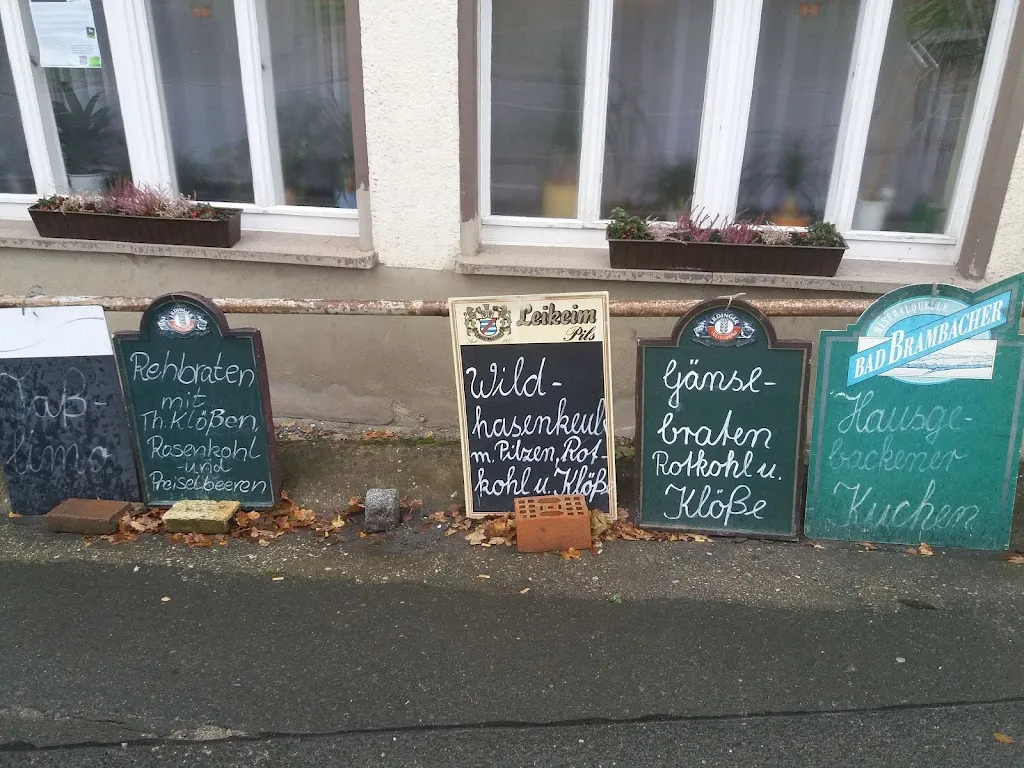 Faß-
limo
Rehbraten
mit
Th. Klößen,
Rosenkohl
und
Preiselbeeren
Leikeim
Pils
Wild-
hasenkeule
m. Pilzen, Rot-
kohl u. Klöße
Gänse-
braten
Rotkohl u.
Klöße
BAD BRAMBACHER
Hausge-
backener
Kuchen